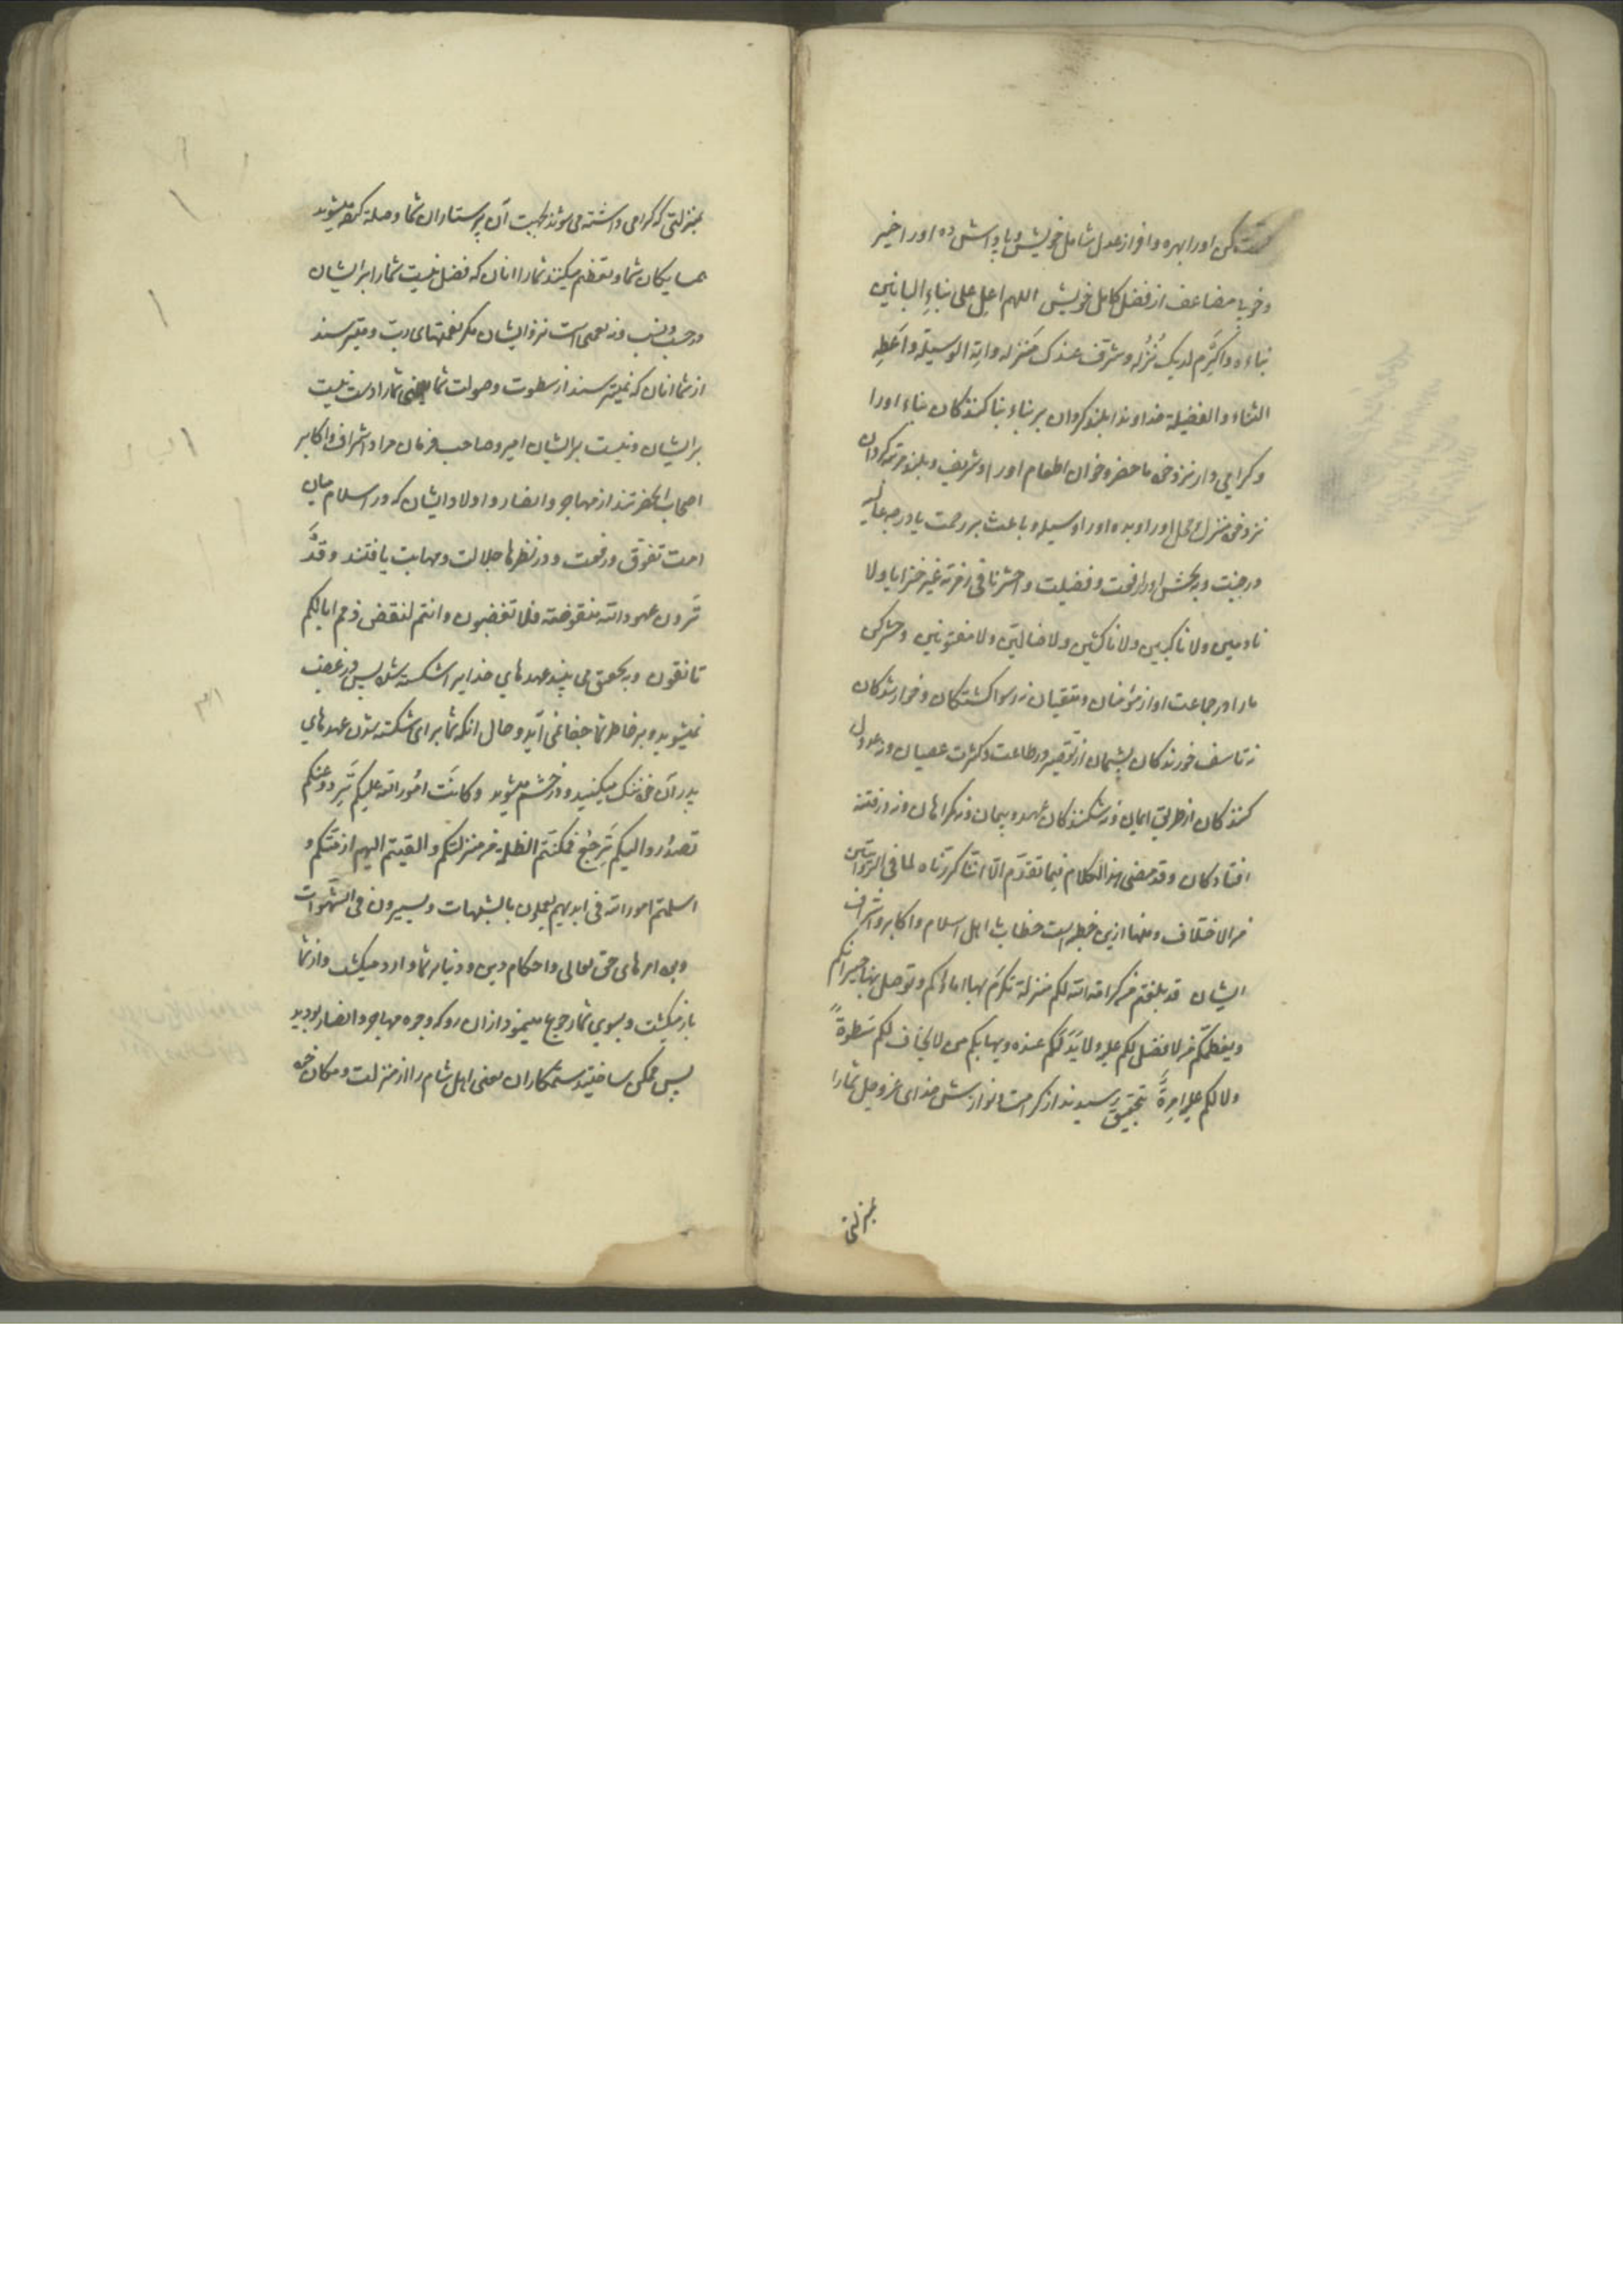 قسمت کن اورا بهره وافر از عدل شامل خویش و پاداش ده اورا خیر
و خوبیا مضاعف از فضل کامل خویش اللهم اعل علی بناء البانین
بناءه و اکرم لدیک نُزُله و شرف عندک مَنزله و آته الوسیلة و اَعطِه
الثناء و الفضیلة خداوندا بلند کردان بر بناء بنا کنندکان بناء اورا
و کرامی دار نزد خود ما حضر و خوان اطعام اورا و شریف و بلند مرتبه کردان
نزد خود منزل و محل اورا و بده اورا وسیله و باعث بر رحمت یا درجه عالیه
در جنت و ببخش اورا رفعت و فضیلت و احشرنا فی زمرته غیر خزایا و لا
نادمین و لا ناکبین و لا ناکثین و لا ضالین و لا مفتونین و حشر کن
مارا در جماعت او از مؤمنان و متقیان نه رسوا کشتکان و خوار شدکان
نه تاسف خورندکان پشیمان از تقصیر در طاعت و کثرت عصیان و نه عدول
کنندکان از طریق ایمان و نه شکنندکان عهد و پیمان و نه کمراهان و نه در فتنه
افتادکان و قد مضی هذا الکلام فیما تقدّم الّا انّنا کررناه لما فی الروایتین
من الاختلاف و منها ازین خطبه است خطاب با اهل اسلام و اکابر و اشراف
ایشان قد بلغتم من کرامة الله لکم منزلة تکرَم بها اماؤکم و توصل بها جیرانکم
و یعظمکم من لا فضل لکم علیه و لا یَدَ لکم عنده و یهابکم من لا یخاف لکم سَطوةً
و لا لکم علیه اِمرةً بتحقیق رسیدند از کرامت و نوازش خدای عز و جل شمارا
بمنزلتی
بمنزلتی که کرامی داشته می شوند بجهت آن پرستاران شما و صله کرده میشوند
همسایکان شما و تعظیم میکنند شمارا انان که فضل نیست شمارا بر ایشان
در حسب و نسب و نه نعمتی است نزد ایشان مکر نعمتهای دین و میترسند
از شما انان که نمیترسند از سطوت و صولت شما یعنی شمارا دست نیست
بر ایشان و نیست بر ایشان امیر و صاحب فرمان مراد اشراف و اکابر
اصحاب انحضرتند از مهاجر و انصار و اولاد ایشان که در اسلام میان
امت تفوّق و رفعت و در نظرها جلالت و مهابت یافتند و قَد
تَرَون عهود الله منقوضة فلا تغضبون و انتم لنقض ذمم ابائکم
تانفون و بتحقیق می بینید عهدهای خدایرا شکسته شده پس در غضب
نمیشوید و بر خاطر شما جفا نمی آید و حال انکه شما برای شکسته شدن عهدهای
پدران خود ننک میکنید و در خشم میشوید و کانَت امُور الله علیکم تَرِد و عنکم
تصدُر و الیکم تَرجعُ فمکنتم الظلمة من منزلتکم و القیتم الیهم ازمّتکم و
اسلمتم امور الله فی ایدیهم یعملون بالشبهات و یسیرون فی الشهَوات
و بود امرهای حق تعالی و احکام دین و دنیا بر شما وارد میکشت و از شما
باز میکشت و بسوی شما رجوع مینمود ازان رو که وجوه مهاجر و انصار بودید
پس ممکن ساختید ستمکاران یعنی اهل شام را از منزلت و مکان خود